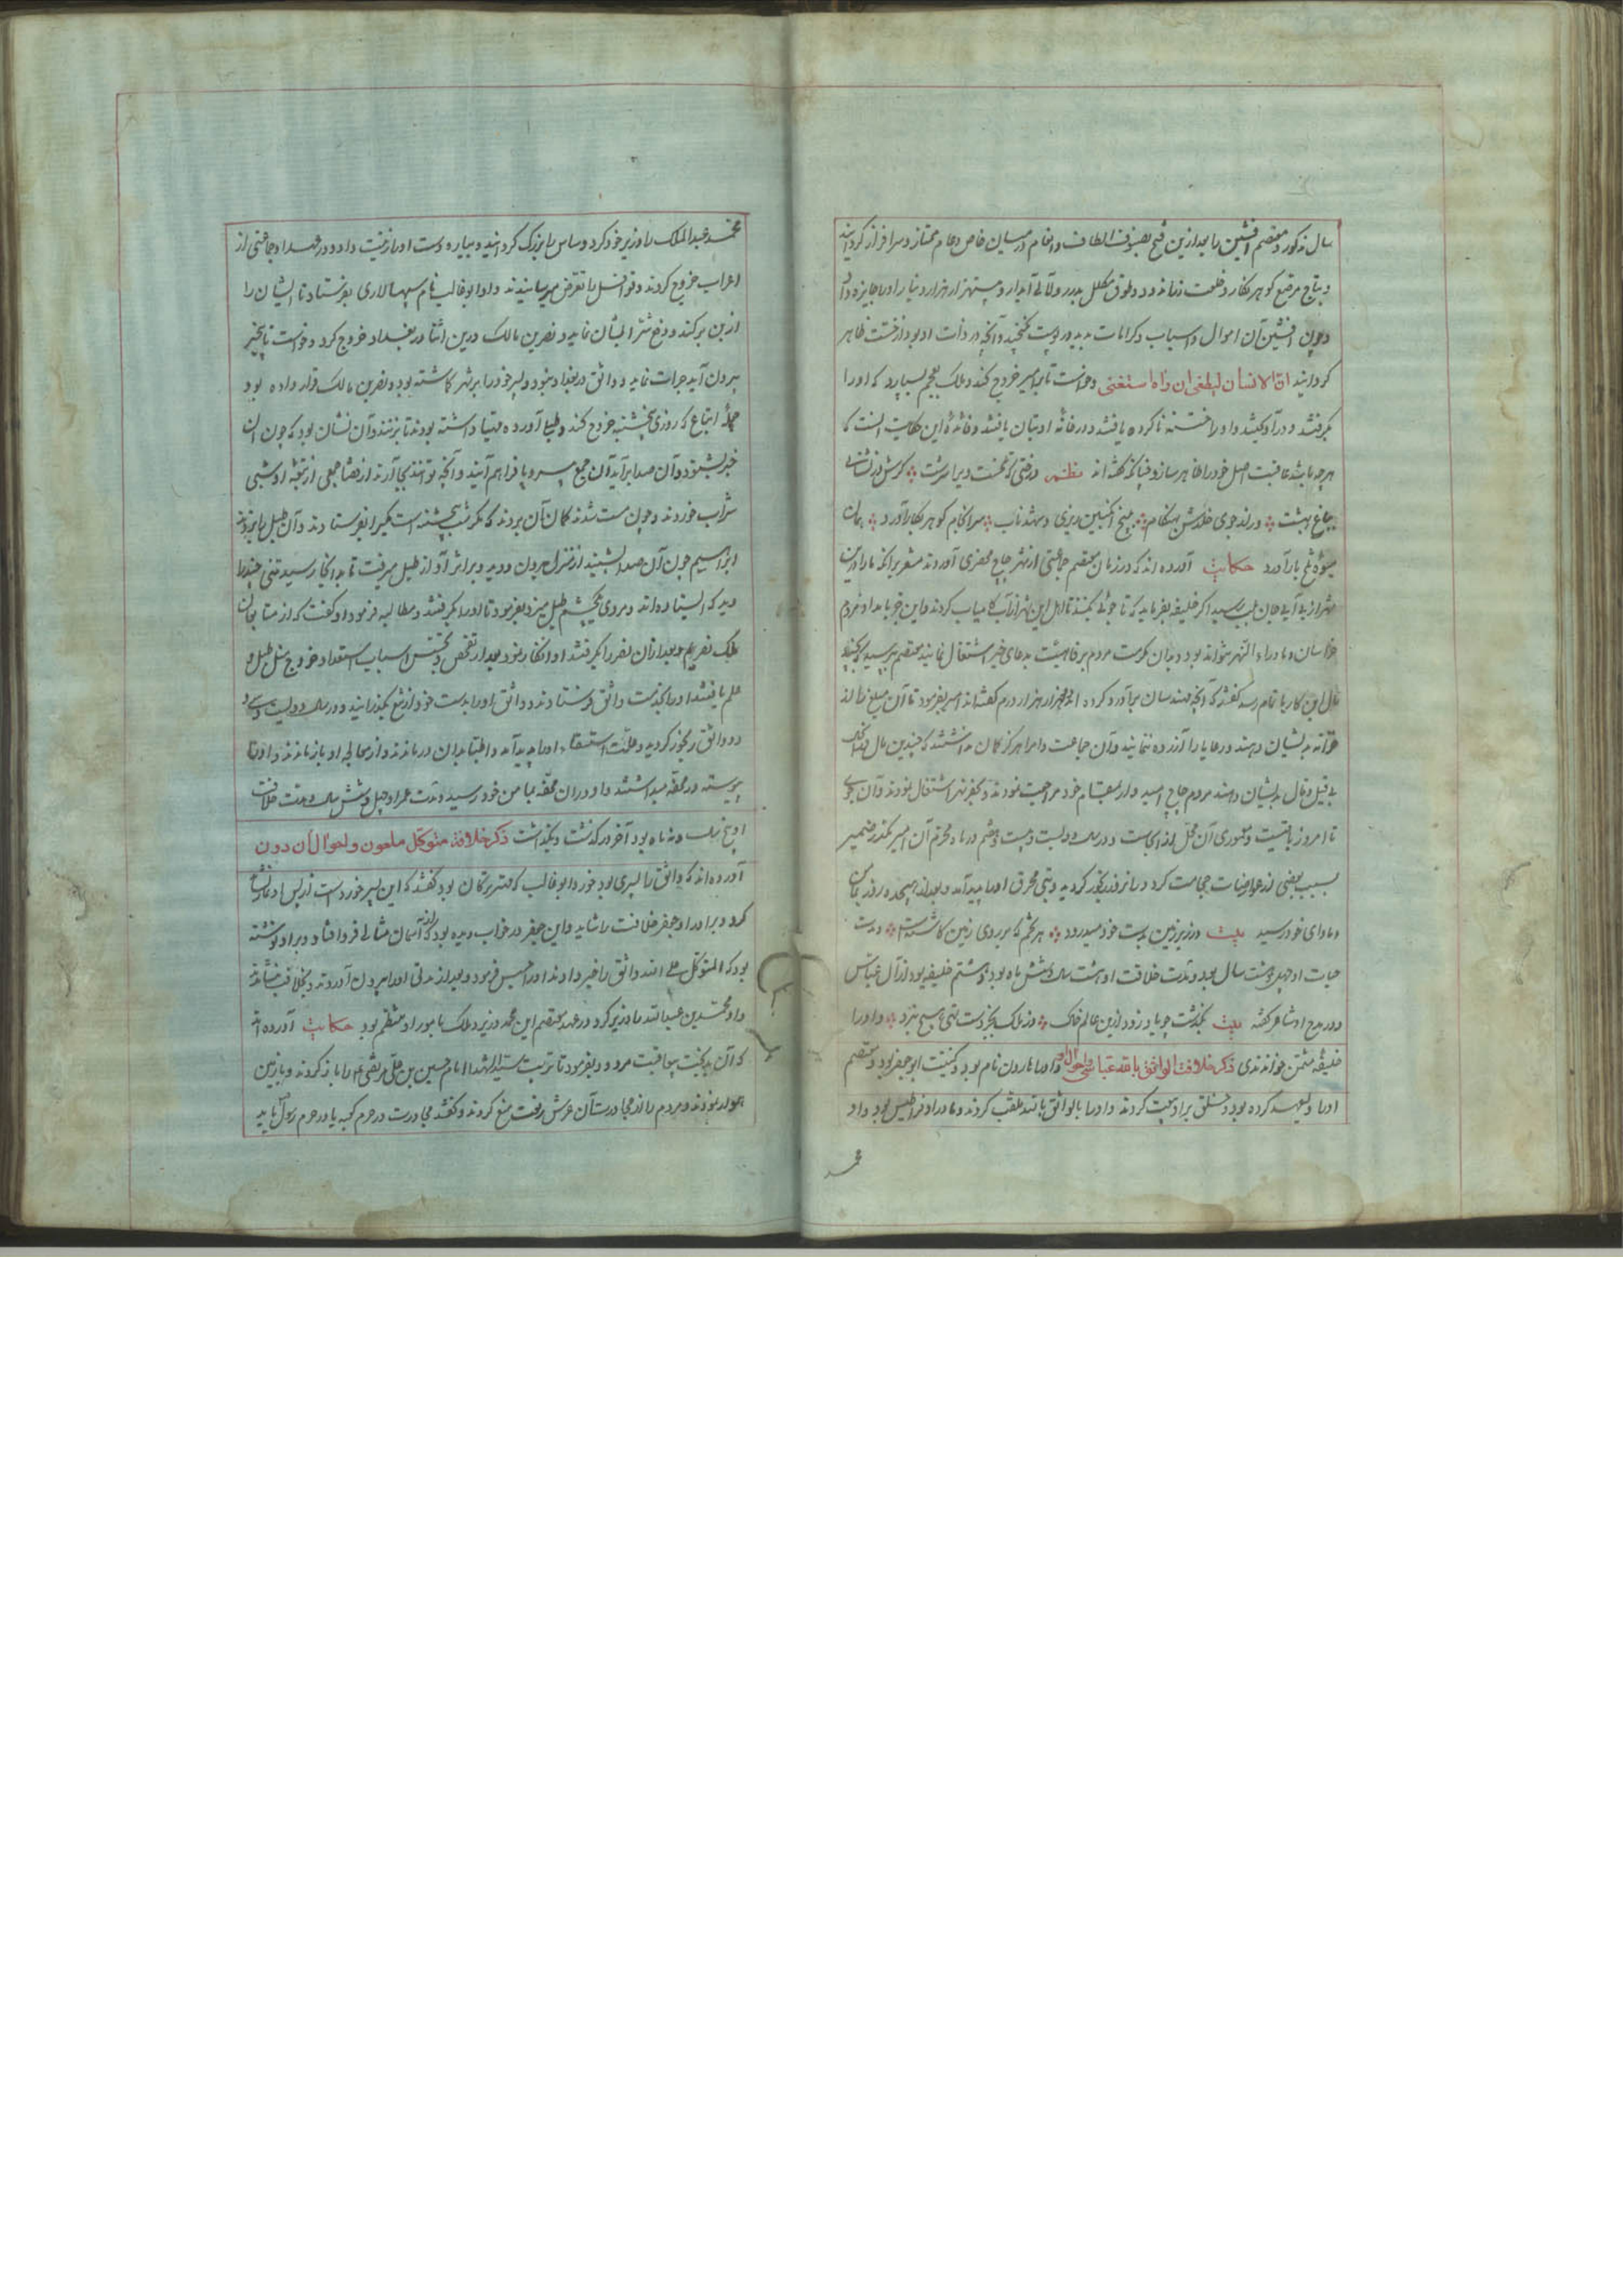 سال مذکور و معتصم افشین را بعد ازین فتح بصنوف الطاف و انعام در میان خاص و عام ممتاز و سرافراز گردانید
و بتاج مرصع گوهر نگار و خلعت و طوق مکلل بدرر و لآلی آبدار و بیستهزار هزار دینار او را جایزه داد
و چون افشین آن اموال و اسباب و کرامات بدید در پوست نگنجید و آنچه در ذات او بود از خست ظاهر
گردانید ان الانسان لیطغی ان راه استغنی و خواست تا بر امیر خروج کند و ملک بعجم بسپارد که او را
بگرفتند و درآویختند و او را ختنه ناکرده یافتند و در خانه او بتان یافتند و فائدهٔ این حکایت آنست که
هرچه باشد عاقبت اصل خود را ظاهر سازد چنانکه گفته اند نظم درختی که تلخست ویرا سرشت گرش در نشانی
بباغ بهشت ور از جوی خلدش بهنگام آب به بیخ انگبین ریزی و شهد ناب سرانجام گوهر بکار آورد همان
میوهٔ تلخ بار آورد حکایت آورده اند که در زمان معتصم جماعتی از شهر چاچ محضری آوردند مشعر برانکه ما را درین
شهر از بی آبی جان بلب رسید اگر خلیفه بفرماید که تا جوئی بکنند تا اهل این شهر از آب کامیاب گردند و این خوبا بداد و مردم
خراسان و ماوراء النهر بتواند بود و بدان مکرمت مردم برفاهیت بدعای خیر اشتغال نمایند معتصم پرسید که بچند
مال این کار باتمام رسد گفتند که آنچه مهندسان برآورد کرده اند هزار هزار درم گفته اند امیر بفرمود تا آن مبلغ را از
خزانه بدیشان دهند و رعایا را آزرده ننمایند و آن جماعت را هرگز گمان نداشتند که چندین مال
بی قیل و قال بدیشان دهند مردم چاچ امیدوار بمقام خود مراجعت نمودند و بحفر نهر اشتغال نمودند و آن جوی
تا امروز باقیست و معموری آن محل از آنست و در سال دویست و بیست و هفتم در ماه محرم آن امیر
بسبب بعضی از عوارضات حجامت کرد و رنجور گردید و تبی محرق او را پدید آمد و بعد از هیجده روز
و ماوای خود رسید بیت ورزیر زمین بدست خود میدرود هر تخم که بر روی زمین کاشته است و مدت
حیات او چهل و هشت سال بود و مدت خلافت او هشت سال و هشت ماه بود و هشتم خلیفه بود از آل عباس
و در مدح او شاعر گفته بیت بگذشت چو باد زود ازین عالم خاک وز ملک بجز دست تهی هیچ نبرد و او را
خلیفه مثمن خوانندی ذکر خلافت الواثق بالله عباسی و احوال او و او را هارون نام بود و کنیت ابو جعفر بود و معتصم
او را ولیعهد کرده بود و خلق بر او بیعت کردند و او را بالواثق بالله ملقب کردند و مادر او قراطیس بود و او
محمد
محمد عبدالملک را وزیر خود کرد و سامره را بزرگ گردانید و بیاره دست او را زینت داد و در عهد او جماعتی از
اعراب خروج کردند و قوافل را تعرض میرسانیدند و او ابو غالب نام سپهسالاری بفرستاد تا ایشان را
از بن برکند و دفع شر ایشان نماید و نصر بن مالک درین اثنا در بغداد خروج کرد و خواست تا بخیر
بیرون آید جرات نماید و واثق در بغداد نبود و پسر خود را بر شهر گماشته بود و نصر بن مالک قرار داده بود
اتباع که روز پنجشنبه خروج کند و طبلها آورده مهیا داشته بودند تا بزنند و آن نشان بود که چون آن
خبر بشنود و آن صدا برآید آن جمع سر و پا فراهم آیند و آنچه توانند بجای آرند از قضا جمعی از تبعه او شبی
شراب خوردند و چون مست شدند گمان آن بردند که مگر شب پنجشنبه است و آن طبل را بزدند
ابراهیم چون آن صدا بشنید از منزل بیرون دوید و بر اثر آواز طبل میرفت تا بدانجا رسید تنی چند را
دید که ایستاده اند و مردی طبل میزد بفرمود تا او را بگرفتند و مطالبه فرمود او گفت که از متابعان
مالک نصریم و بعد ازان نصر را بگرفتند او انکار نمود بعد از تفحص و تجسس اسباب استعداد خروج مثل طبل و
علم یافتند او را بخدمت واثق فرستادند و واثق او را بدست خود از تیغ بگذرانید و در سال دویست و سی و
دو واثق رنجور گردید و علت استسقا او را پدید آمد و اطبا بدان درماندند و از معالجه او باز ماندند و او را
پیوسته در محفه میداشتند و او در آن محفه بمامن خود رسید و مدت عمر او چهل و شش سال و مدت خلافت
او پنج سال و نه ماه بود آخر درگذشت و بگذاشت ذکر خلافت متوکل ملعون و احوال آن دون
آورده اند که واثق را پسری بود خورد ابو غالب که مهتر ترکان بود گفتند که این پسر خورد است
کرد و برادر او جعفر خلافت را شاید و این جعفر در خواب دیده بود که از آسمان مثالی فرو افتاد و بر او نوشته
بود که المتوکل علی الله واثق را خبر دادند او را حبس فرمود و بعد از مدتی او را بیرون آوردند و بخلافت بنشاندند
و او محمد بن عبدالله را وزیر کرد و در عهد معتصم این محمد وزیر و ملک بامور او منتظم بود حکایت آورده اند
که آن بدبخت بیعاقبت مردود بفرمود تا تربت سید الشهدا امام حسین بن علی مرتضی ع را باز کردند و با زمین
هموار نمودند و مردم را از مجاورت آن عرش رفعت منع کردند و گفتند مجاورت در حرم کعبه یا در حرم رسول باید